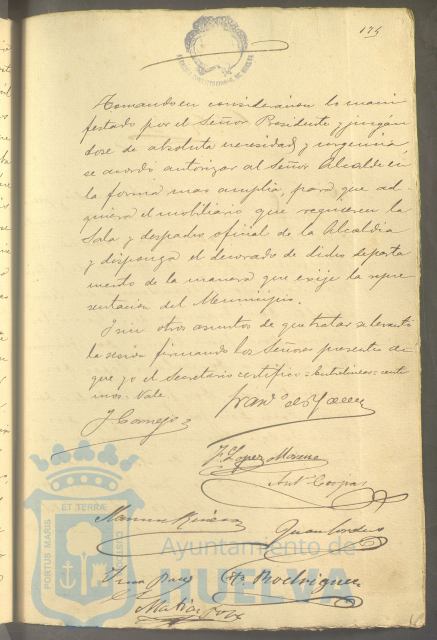 175
Tomando en consideracion lo mani
festado por el Señor Presidente y juzgan
dose de absoluta necesidad y urgencia,
se acordó autorizar al Señor Alcalde en
la forma mas amplia, para que ad
quiera el mobiliario que requieren la
Sala y despacho oficial de la Alcaldia
y disponga el decorado de dicho departa
mento de la manera que exije la repre
sentacion del Municipio.
Y sin otros asuntos de que tratar se levantó
la sesion firmando los Señores presentes de
que yo el Secretario certifico = Entrelineas =
mos. Vale
J Cornejo
F. Lopez Moreno
Ant.º
Manuel
Juan Cordero
Rodriguez
Matias
PORTUS MARIS
ET TERRÆ
Ayuntamiento de
HUELVA